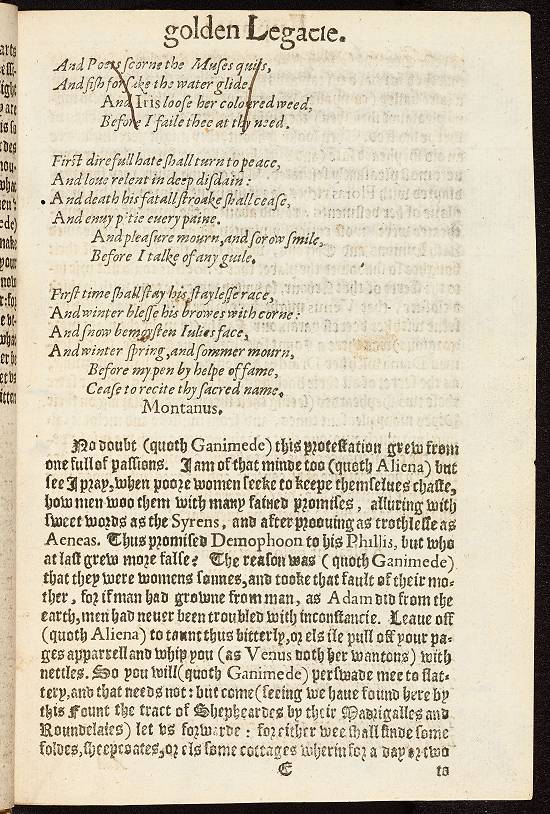 golden Legacie.
And Poets scorne the Muses quils,
And fish forsake the water glide.
And Iris loose her coloured weed,
Before I faile thee at thy need.
First direfull hate shall turn to peace,
And loue relent in deep disdain:
And death his fatall stroake shall cease,
And enuy pitie euery paine.
And pleasure mourn, and sorow smile,
Before I talke of any guile.
First time shall stay his staylesse race,
And winter blesse his browes with corne:
And snow bemoysten Iulies face,
And winter spring, and sommer mourn,
Before my pen by helpe of fame,
Cease to recite thy sacred name.
Montanus.
No doubt (quoth Ganimede) this protestation grew from
one full of passions. I am of that minde too (quoth Aliena) but
see I pray, when poore women seeke to keepe themselues chaste,
how men woo them with many fained promises, alluring with
sweet words as the Syrens, and after proouing as trothlesse as
Aeneas. Thus promised Demophoon to his Phillis, but who
at last grew more false? The reason was (quoth Ganimede)
that they were womens sonnes, and tooke that fault of their mo-
ther, for if man had growne from man, as Adam did from the
earth, men had neuer been troubled with inconstancie. Leaue off
(quoth Aliena) to taunt thus bitterly, or els ile pull off your pa-
ges apparrell and whip you (as Venus doth her wantons) with
nettles. So you will (quoth Ganimede) perswade mee to flat-
tery, and that needs not: but come (seeing we haue found here by
this Fount the tract of Shepheardes by their Madrigalles and
Roundelaies) let vs forwarde: for either wee shall finde some
foldes, sheepcoates, or els some cottages wherin for a day or two
E to